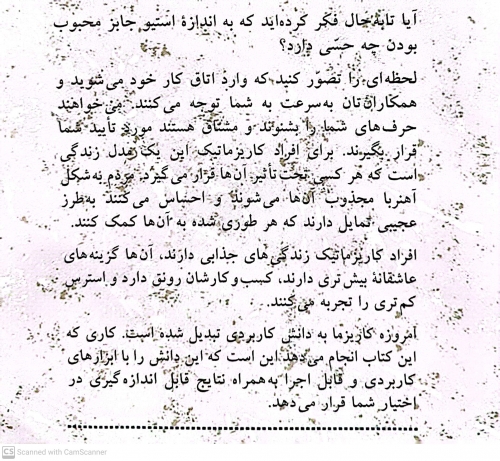 آیا تابه‌حال فکر کرده‌اید که به اندازهٔ استیو جابز محبوب
بودن چه حسّی دارد؟
لحظه‌ای را تصوّر کنید که وارد اتاق کار خود می‌شوید و
همکاران‌تان به‌سرعت به شما توجه می‌کنند. می‌خواهند
حرف‌های شما را بشنوند و مشتاق هستند مورد تأیید شما
قرار بگیرند. برای افراد کاریزماتیک این یک مدل زندگی
است که هر کسی تحت‌تأثیر آن‌ها قرار می‌گیرد. مردم به‌شکل
آهنربا مجذوب آن‌ها می‌شوند و احساس می‌کنند به‌طرز
عجیبی تمایل دارند که هر طوری شده به آن‌ها کمک کنند.
افراد کاریزماتیک زندگی‌های جذابی دارند، آن‌ها گزینه‌های
عاشقانهٔ بیش‌تری دارند، کسب‌وکارشان رونق دارد و استرس
کم‌تری را تجربه می‌کنند.
امروزه کاریزما به دانش کاربردی تبدیل شده است. کاری که
این کتاب انجام می‌دهد این است که این دانش را با ابزارهای
کاربردی و قابل اجرا به‌همراه نتایج قابل اندازه‌گیری در
اختیار شما قرار می‌دهد.
CS Scanned with CamScanner